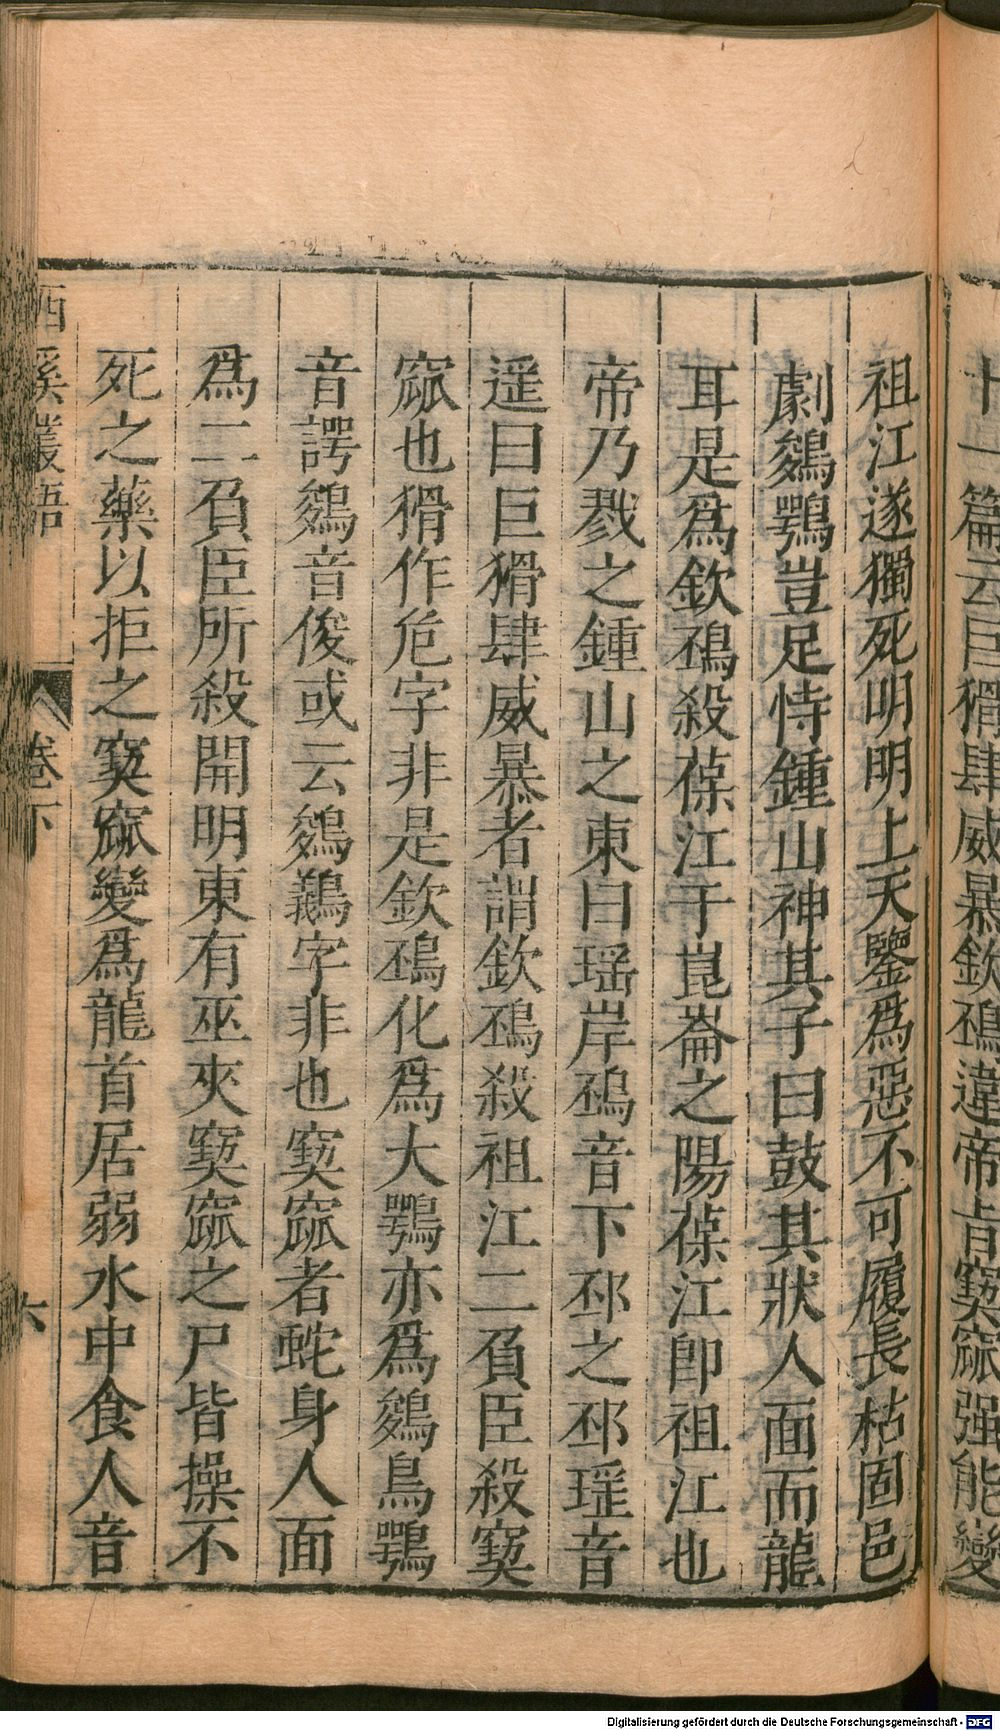 十一篇云巨猾肆威暴欽䲹違帝旨窫窳强能變
祖江遂獨死明明上天鑒爲惡不可履長枯固邑
劇鵕鶚豈足恃鍾山神其子曰鼓其狀人面而龍
耳是爲欽䲹殺葆江于崑崙之陽葆江卽祖江也
帝乃戮之鍾山之東曰瑶岸䲹音下邳之邳瑶音
遥曰巨猾肆威暴者謂欽䲹殺祖江二負臣殺窫
窳也猾作危字非是欽䲹化爲大鶚亦爲鵕鳥鶚
音諤鵕音俊或云鵕鸃字非也窫窳者蛇身人面
爲二負臣所殺開明東有巫夾窫窳之尸皆操不
死之藥以拒之窫窳變爲龍首居弱水中食人音
西溪叢語 卷下 六
Digitalisierung gefördert durch die Deutsche Forschungsgemeinschaft - DFG